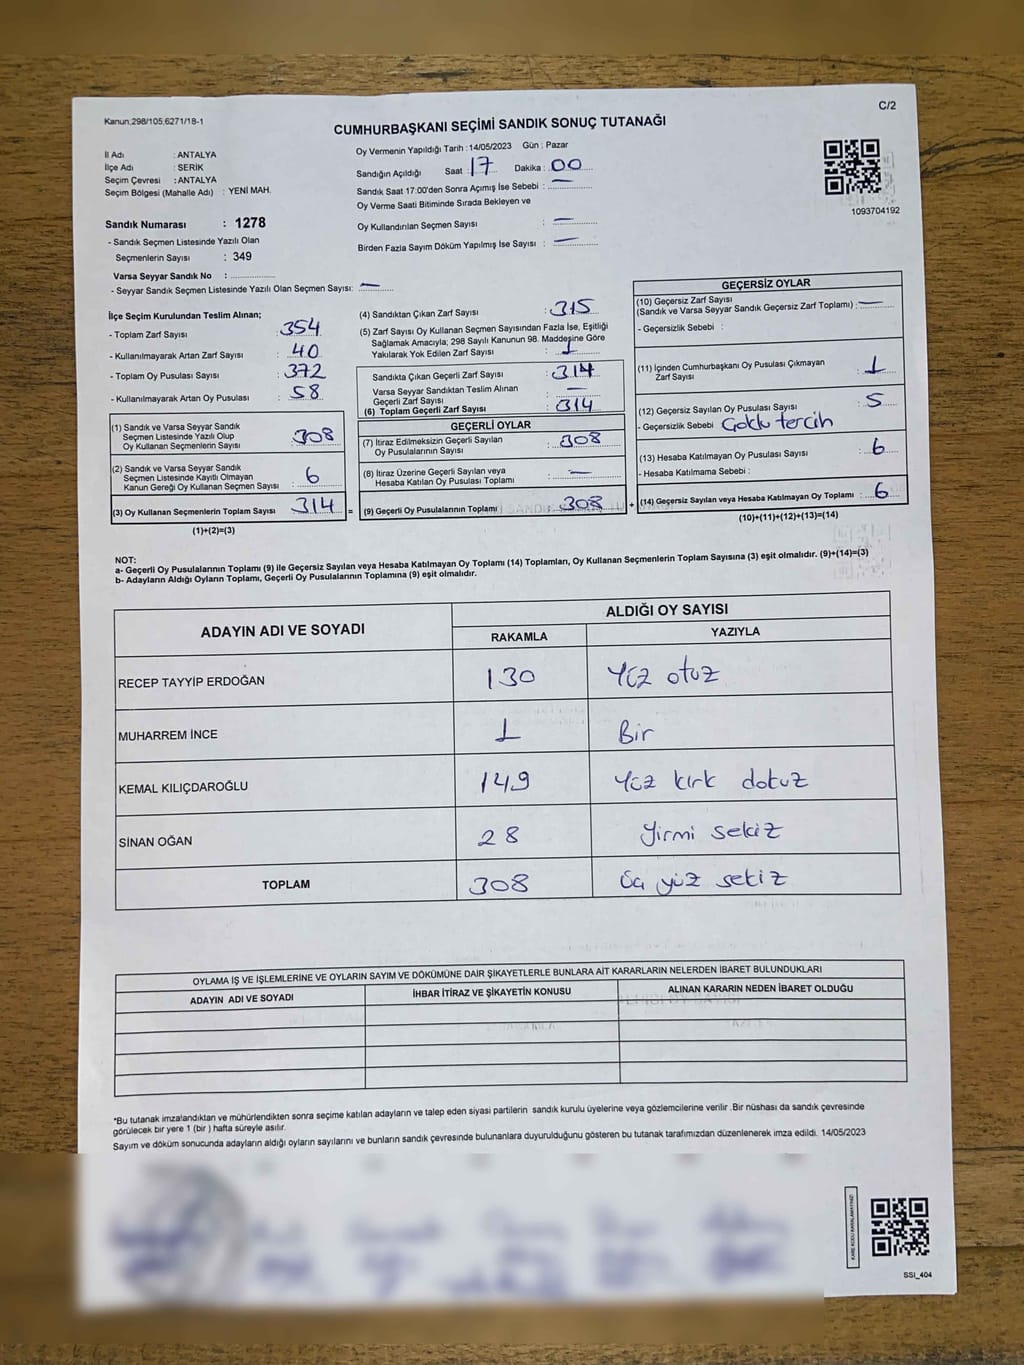 C/2
Kanun.298/105,6271/18-1
CUMHURBAŞKANI SEÇİMİ SANDIK SONUÇ TUTANAĞI
İl Adı : ANTALYA
İlçe Adı : SERİK
Seçim Çevresi : ANTALYA
Seçim Bölgesi (Mahalle Adı) : YENİ MAH.
Sandık Numarası : 1278
- Sandık Seçmen Listesinde Yazılı Olan
Seçmenlerin Sayısı : 349
Varsa Seyyar Sandık No : ..............
- Seyyar Sandık Seçmen Listesinde Yazılı Olan Seçmen Sayısı: —
Oy Vermenin Yapıldığı Tarih : 14/05/2023 Gün : Pazar
Sandığın Açıldığı Saat : 17 Dakika : 00
Sandık Saat 17:00'den Sonra Açımış İse Sebebi : —
Oy Verme Saati Bitiminde Sırada Bekleyen ve
Oy Kullandırılan Seçmen Sayısı : —
Birden Fazla Sayım Döküm Yapılmış İse Sayısı : —
1093704192
İlçe Seçim Kurulundan Teslim Alınan;
- Toplam Zarf Sayısı : 354
- Kullanılmayarak Artan Zarf Sayısı : 40
- Toplam Oy Pusulası Sayısı : 372
- Kullanılmayarak Artan Oy Pusulası : 58
(1) Sandık ve Varsa Seyyar Sandık
Seçmen Listesinde Yazılı Olup
Oy Kullanan Seçmenlerin Sayısı : 308
(2) Sandık ve Varsa Seyyar Sandık
Seçmen Listesinde Kayıtlı Olmayan
Kanun Gereği Oy Kullanan Seçmen Sayısı : 6
(3) Oy Kullanan Seçmenlerin Toplam Sayısı : 314 =
(1)+(2)=(3)
(4) Sandıktan Çıkan Zarf Sayısı : 315
(5) Zarf Sayısı Oy Kullanan Seçmen Sayısından Fazla İse, Eşitliği
Sağlamak Amacıyla; 298 Sayılı Kanunun 98. Maddesine Göre
Yakılarak Yok Edilen Zarf Sayısı : 1
Sandıkta Çıkan Geçerli Zarf Sayısı : 314
Varsa Seyyar Sandıktan Teslim Alınan
Geçerli Zarf Sayısı : —
(6) Toplam Geçerli Zarf Sayısı : 314
GEÇERLİ OYLAR
(7) İtiraz Edilmeksizin Geçerli Sayılan
Oy Pusulalarının Sayısı : 308
(8) İtiraz Üzerine Geçerli Sayılan veya
Hesaba Katılan Oy Pusulası Toplamı : —
(9) Geçerli Oy Pusulalarının Toplamı : 308 +
GEÇERSİZ OYLAR
(10) Geçersiz Zarf Sayısı
(Sandık ve Varsa Seyyar Sandık Geçersiz Zarf Toplamı) : —
- Geçersizlik Sebebi :
(11) İçinden Cumhurbaşkanı Oy Pusulası Çıkmayan
Zarf Sayısı : 1
(12) Geçersiz Sayılan Oy Pusulası Sayısı : 5
- Geçersizlik Sebebi Çoklu tercih
(13) Hesaba Katılmayan Oy Pusulası Sayısı : 6
- Hesaba Katılmama Sebebi :
(14) Geçersiz Sayılan veya Hesaba Katılmayan Oy Toplamı : 6
(10)+(11)+(12)+(13)=(14)
NOT:
a- Geçerli Oy Pusulalarının Toplamı (9) ile Geçersiz Sayılan veya Hesaba Katılmayan Oy Toplamı (14) Toplamları, Oy Kullanan Seçmenlerin Toplam Sayısına (3) eşit olmalıdır. (9)+(14)=(3)
b- Adayların Aldığı Oyların Toplamı, Geçerli Oy Pusulalarının Toplamına (9) eşit olmalıdır.
ADAYIN ADI VE SOYADI
ALDIĞI OY SAYISI
RAKAMLA YAZIYLA
RECEP TAYYİP ERDOĞAN 130 Yüz otuz
MUHARREM İNCE 1 Bir
KEMAL KILIÇDAROĞLU 149 Yüz kırk dokuz
SİNAN OĞAN 28 Yirmi sekiz
TOPLAM 308 Üç yüz sekiz
OYLAMA İŞ VE İŞLEMLERİNE VE OYLARIN SAYIM VE DÖKÜMÜNE DAİR ŞİKAYETLERLE BUNLARA AİT KARARLARIN NELERDEN İBARET BULUNDUKLARI
ADAYIN ADI VE SOYADI İHBAR İTİRAZ VE ŞİKAYETİN KONUSU ALINAN KARARIN NEDEN İBARET OLDUĞU
*Bu tutanak imzalandıktan ve mühürlendikten sonra seçime katılan adayların ve talep eden siyasi partilerin sandık kurulu üyelerine veya gözlemcilerine verilir .Bir nüshası da sandık çevresinde
görülecek bir yere 1 (bir ) hafta süreyle asılır.
Sayım ve döküm sonucunda adayların aldığı oyların sayılarını ve bunların sandık çevresinde bulunanlara duyurulduğunu gösteren bu tutanak tarafımızdan düzenlenerek imza edildi. 14/05/2023
SSİ_404